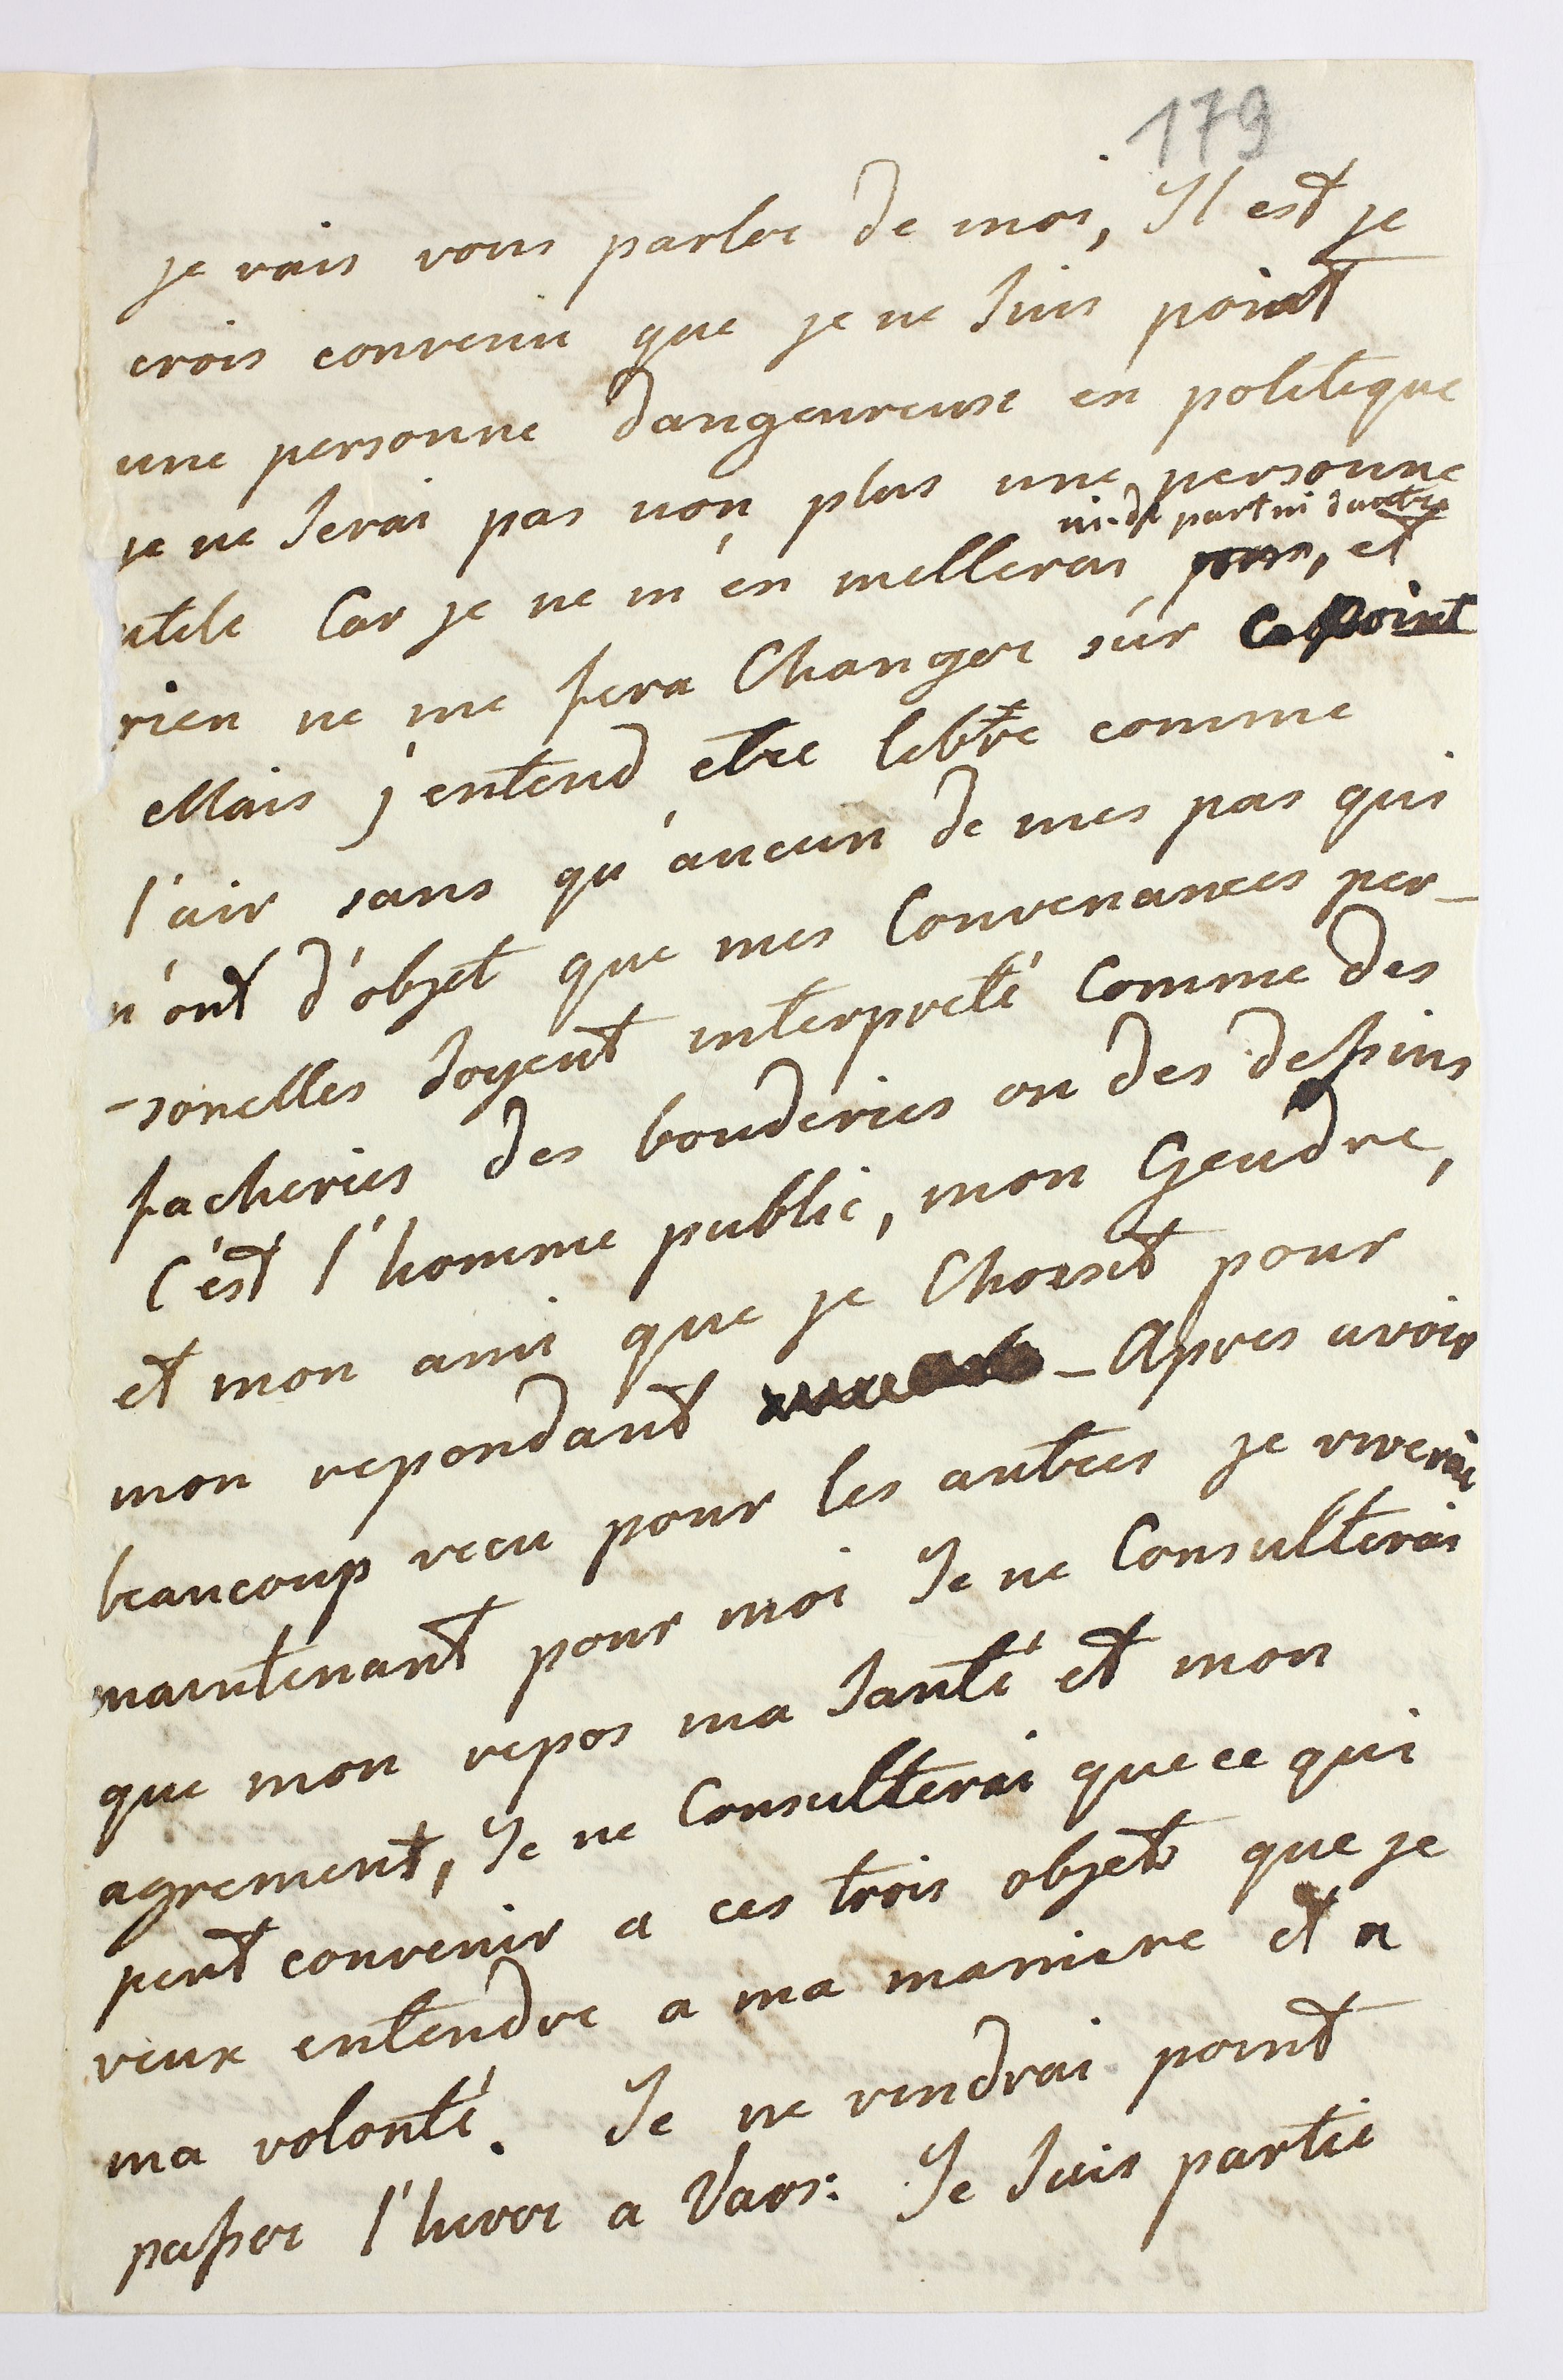 179
je vais vous parler de moi, Il est je
crois convenu que je ne suis point
une personne dangeureuse en politique
je ne serai pas non plus une personne
ni de part ni dautre
utile Car je ne m'en mellerai pas, et
rien ne me fera Changer sur ce point
Mais j'entend etre libre comme
l'air sans qu'aucun de mes pas qui
n'ont d'objet que mes Convenances per-
-sonelles soyent interpreté Comme des
facheries des bouderies ou des dessins
C'est l'homme public, mon Gendre,
et mon ami que je Choisit pour
mon repondant - Apres avoir
beaucoup vecu pour les autres je viverai
maintenant pour moi Je ne Consulterai
que mon repos ma Santé et mon
agrement, Je ne Consulterai que ce qui
peut convenir a ces trois objets que je
veux entendre a ma maniere et a
ma volonté. Je ne viendrai point
passer l'hiver a Vars: Je suis partie